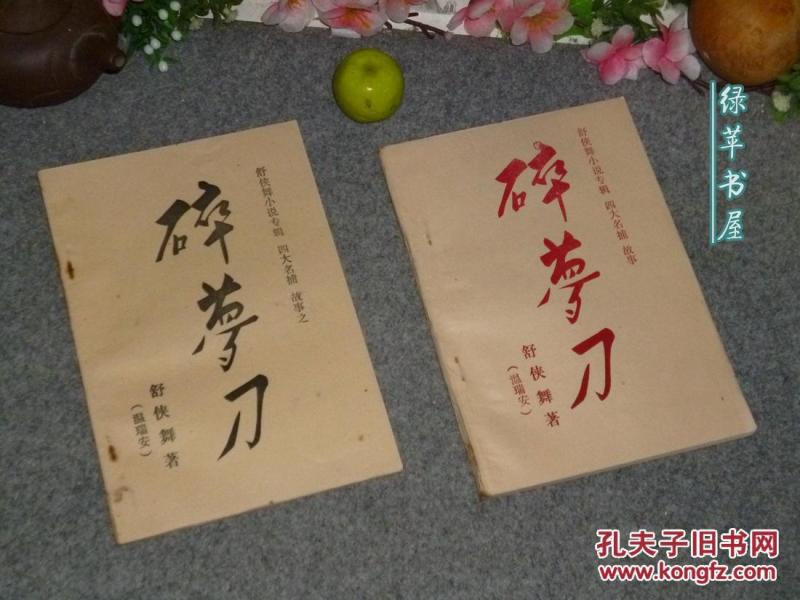 舒侠舞小说专辑 四大名捕 故事之
碎梦刀
舒侠舞著
(温瑞安)
舒侠舞小说专辑 四大名捕 故事
碎梦刀
舒侠舞著
(温瑞安)
绿苹书屋
孔夫子旧书网
www.kongfz.com